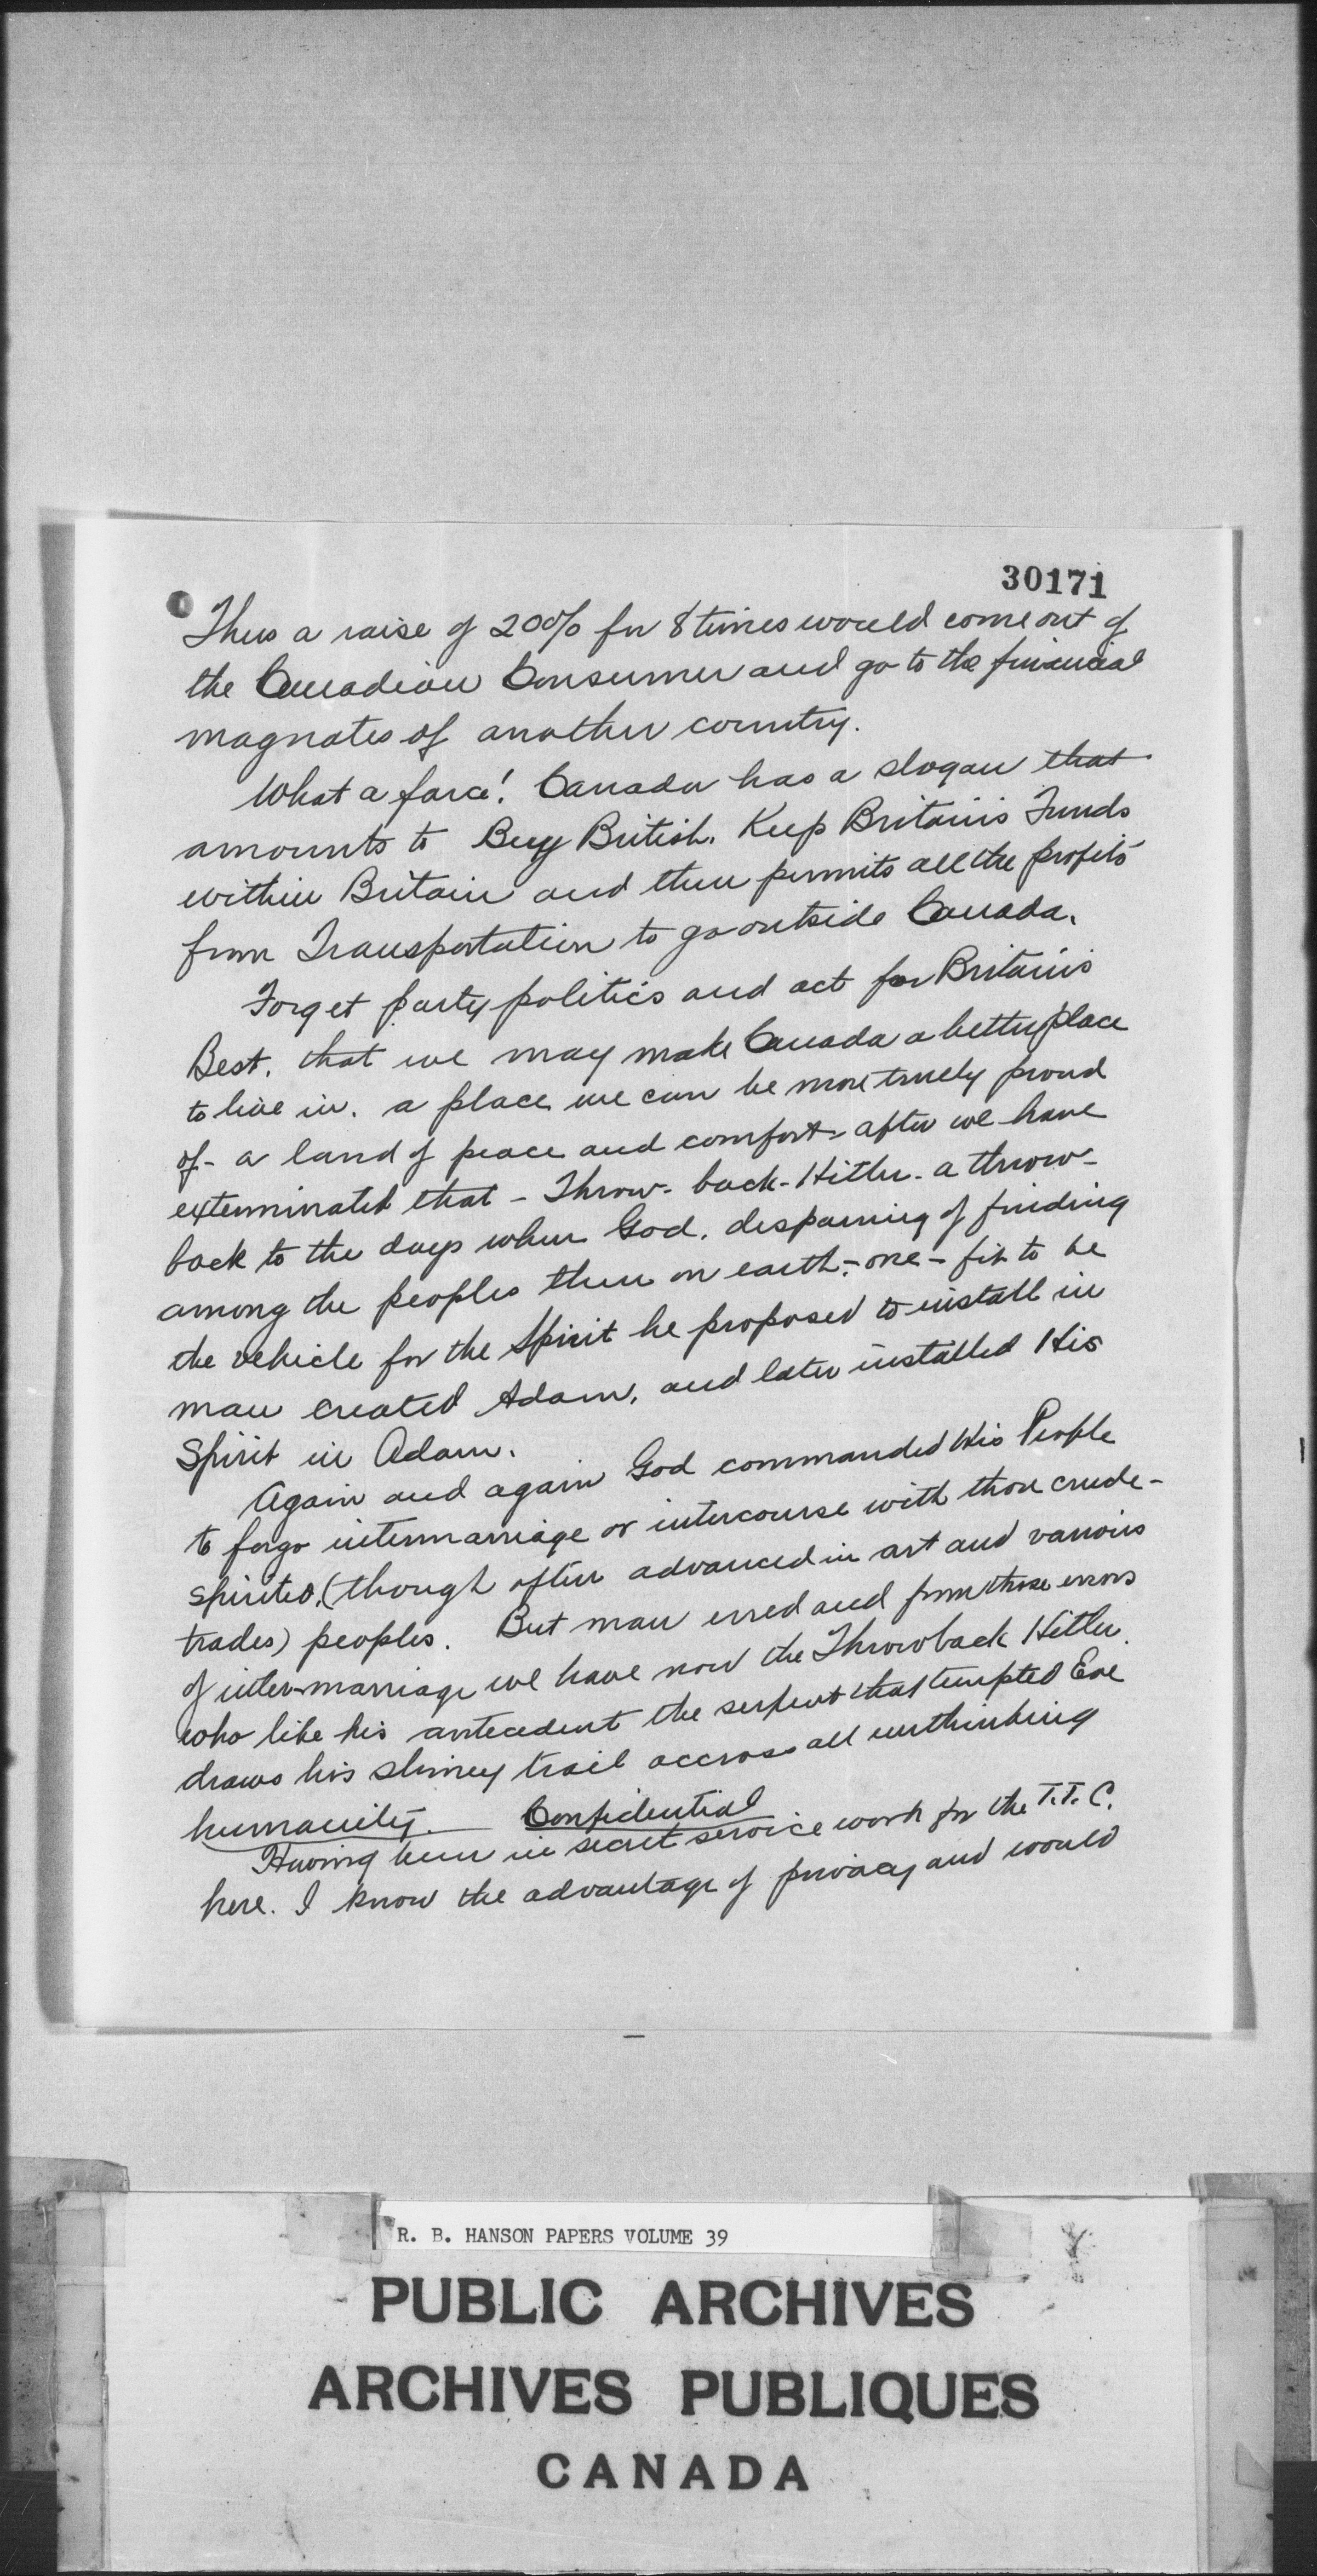 30171
Thus a raise of 20% for 8 times would come out of
the Canadian Consumer and go to the financial
magnates of another country.
What a farce! Canada has a slogan that
amounts to Buy British. Keep Britain's Funds
within Britain and then permits all the profits
from Transportation to go outside Canada.
Forget party politics and act for Britain's
Best. that we may make Canada a better place
to live in. a place we can be more truely proud
of - a land of peace and comfort after we have
exterminated that - Throw-back-Hitler - a throw-
back to the days when God, despairing of finding
among the peoples then on earth - one - fit to be
the vehicle for the Spirit he proposed to install in
man created Adam, and later installed His
Spirit in Adam.
Again and again God commanded His People
to forgo intermarriage or intercourse with those crude-
spirited, (though often advanced in art and various
trades) peoples. But man erred and from those errors
of inter-marriage we have now the Throwback Hitler.
who like his antecedent the serpent that tempted Eve
draws his slimey trail accross all unthinking
humanity. Confidential
Having been in secret service work for the T.T.C.
here. I know the advantage of privacy and would
R. B. HANSON PAPERS VOLUME 39
PUBLIC ARCHIVES
ARCHIVES PUBLIQUES
CANADA